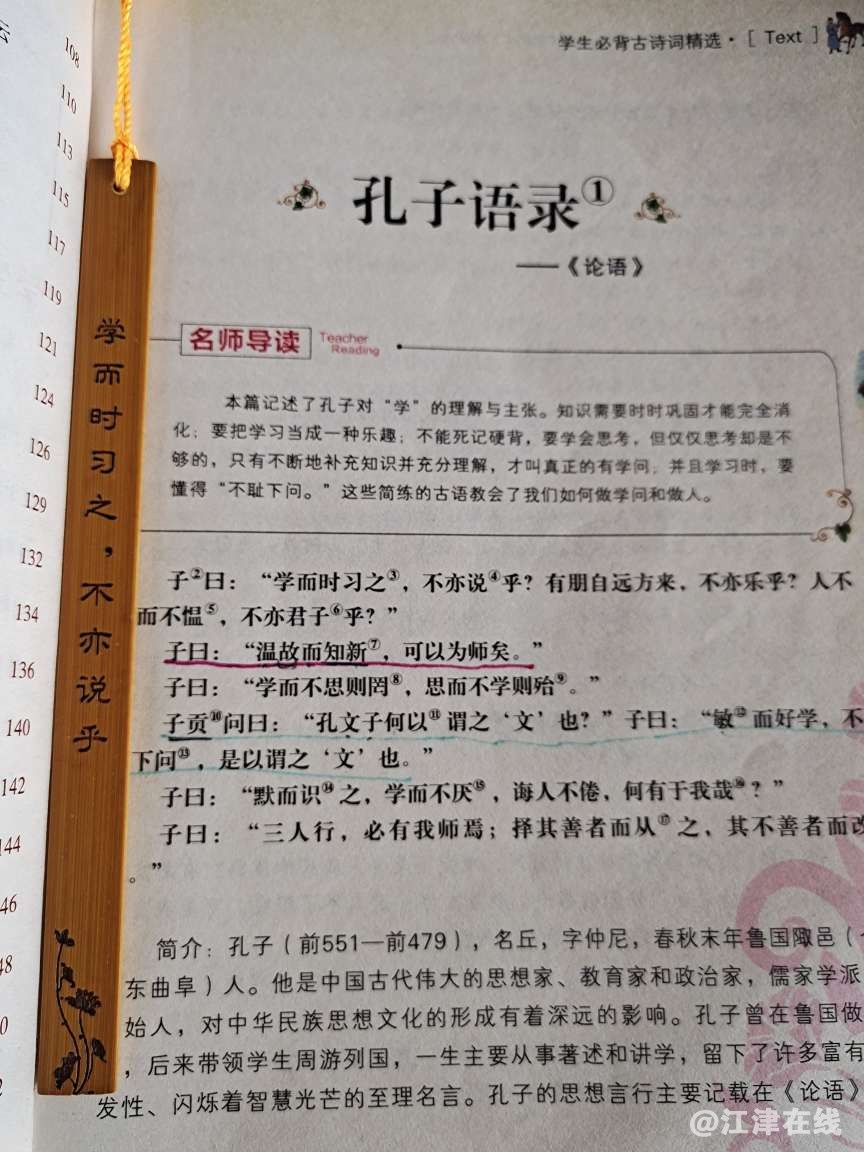 108
110
113
115
117
119
121
124
126
129
132
134
136
140
142
144
46
48
学而时习之，不亦说乎
学生必背古诗词精选·[ Text ]
孔子语录①
——《论语》
名师导读 Teacher Reading
本篇记述了孔子对“学”的理解与主张。知识需要时时巩固才能完全消
化；要把学习当成一种乐趣；不能死记硬背，要学会思考，但仅仅思考却是不
够的，只有不断地补充知识并充分理解，才叫真正的有学问；并且学习时，要
懂得“不耻下问。”这些简练的古语教会了我们如何做学问和做人。
子②曰：“学而时习之③，不亦说④乎？有朋自远方来，不亦乐乎？人不
而不愠⑤，不亦君子⑥乎？”
子曰：“温故而知新⑦，可以为师矣。”
子曰：“学而不思则罔⑧，思而不学则殆⑨。”
子贡⑩问曰：“孔文子何以⑪谓之‘文’也？”子曰：“敏⑫而好学，不
下问⑬，是以谓之‘文’也。”
子曰：“默而识⑭之，学而不厌⑮，诲人不倦，何有于我哉⑯？”
子曰：“三人行，必有我师焉；择其善者而从⑰之，其不善者而改
。”
简介：孔子（前551—前479），名丘，字仲尼，春秋末年鲁国陬邑（
东曲阜）人。他是中国古代伟大的思想家、教育家和政治家，儒家学派
始人，对中华民族思想文化的形成有着深远的影响。孔子曾在鲁国做
，后来带领学生周游列国，一生主要从事著述和讲学，留下了许多富有
发性、闪烁着智慧光芒的至理名言。孔子的思想言行主要记载在《论语》
@江津在线